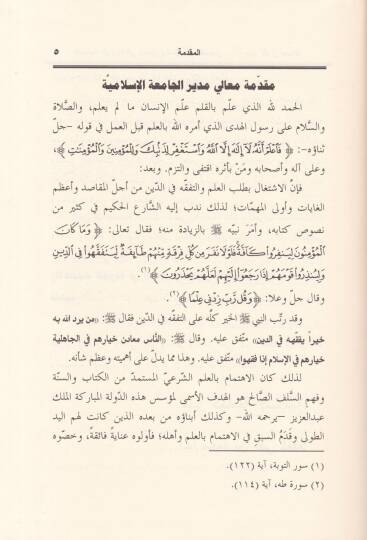 المقدمة ٥
مقدّمة معالي مدير الجامعة الإسلاميّة
الحمد لله الذي علّم بالقلم علّم الإنسان ما لم يعلم، والصّلاة
والسّلام على رسول الهدى الذي أمره الله بالعلم قبل العمل في قوله –جلّ
ثناؤه–: ﴿ فَاعْلَمْ أَنَّهُ لَا إِلَهَ إِلَّا اللَّهُ وَاسْتَغْفِرْ لِذَنْبِكَ وَلِلْمُؤْمِنِينَ وَالْمُؤْمِنَتِ ﴾،
وعلى آله وأصحابه ومَنْ بأثره اقتفى والتزم. وبعد:
فإنّ الاشتغال بطلب العلم والتفقّه في الدّين من أجلّ المقاصد وأعظم
الغايات وأولى المهمّات؛ لذلك ندب إليه الشّارع الحكيم في كثير من
نصوص كتابه، وأمَرَ نبيّه ﷺ بالزيادة منه؛ فقال تعالى: ﴿ وَمَا كَانَ
الْمُؤْمِنُونَ لِيَنفِرُوا كَافَّةً فَلَوْلَا نَفَرَ مِن كُلِّ فِرْقَةٍ مِّنْهُمْ طَائِفَةٌ لِّيَتَفَقَّهُوا فِي الدِّينِ
وَلِيُنذِرُوا قَوْمَهُمْ إِذَا رَجَعُوا إِلَيْهِمْ لَعَلَّهُمْ يَحْذَرُونَ ﴾(١).
وقال جلّ وعلا: ﴿وَقُل رَّبِّ زِدْنِي عِلْمًا ﴾(٢).
وقد رتّب النبي ﷺ الخير كلّه على التفقّه في الدّين فقال ﷺ: «من يرد الله به
خيراً يفقّهه في الدين» متّفق عليه. وقال ﷺ: «النّاس معادن خيارهم في الجاهلية
خيارهم في الإسلام إذا فقهوا» متّفق عليه. وهذا ممّا يدلّ على أهميته وعظم شأنه.
لذلك كان الاهتمام بالعلم الشّرعيّ المستمدّ من الكتاب والسنّة
وفهم السّلف الصّالح هو الهدف الأسمى لمؤسس هذه الدّولة المباركة الملك
عبدالعزيز –يرحمه الله– وكذلك أبناؤه من بعده الذين كانت لهم اليد
الطولى وقَدَمُ السبق في الاهتمام بالعلم وأهله؛ فأولوه عناية فائقة، وخصّوه
(١) سور التوبة، آية (١٢٢).
(٢) سورة طه، آية (١١٤).